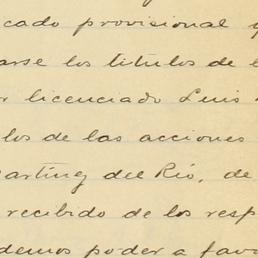 cado provisional y
arse los títulos de
licenciado Luis
los de las acciones
artínez del Río, de
recibido de los resp
demos poder a fav